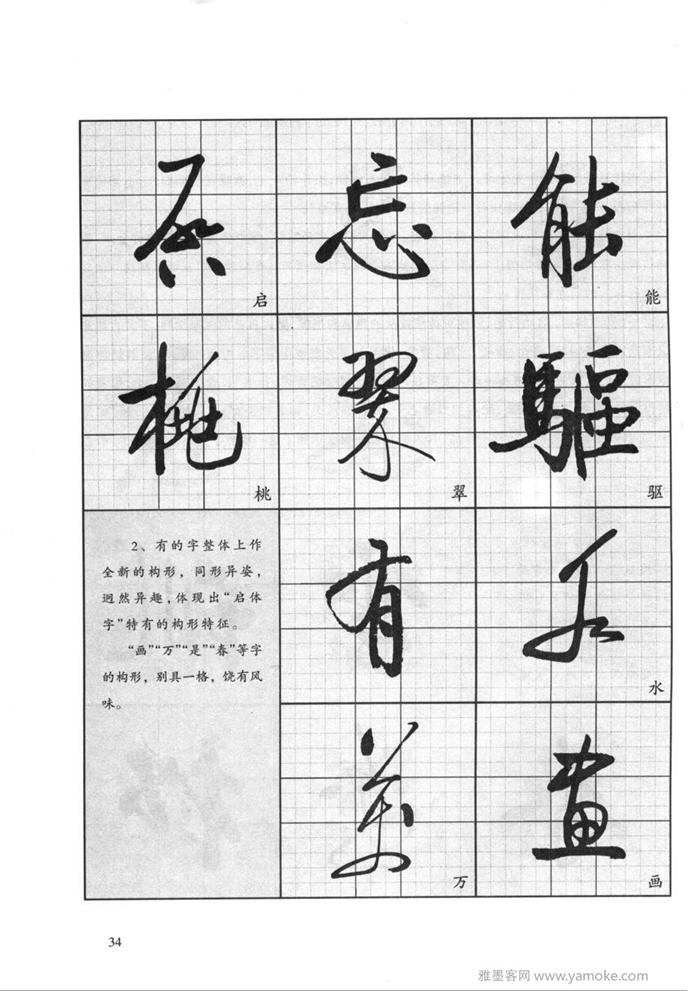 啟 忘 能
启 能
桃 翠 驅
桃 翠 驱
2、有的字整体上作
全新的构形，同形异姿，
迥然异趣，体现出“启体
字”特有的构形特征。
“画”“万”“是”“春”等字
的构形，别具一格，饶有风
味。
有 水
水
萬 畫
万 画
34
雅墨客网 www.yamoke.com